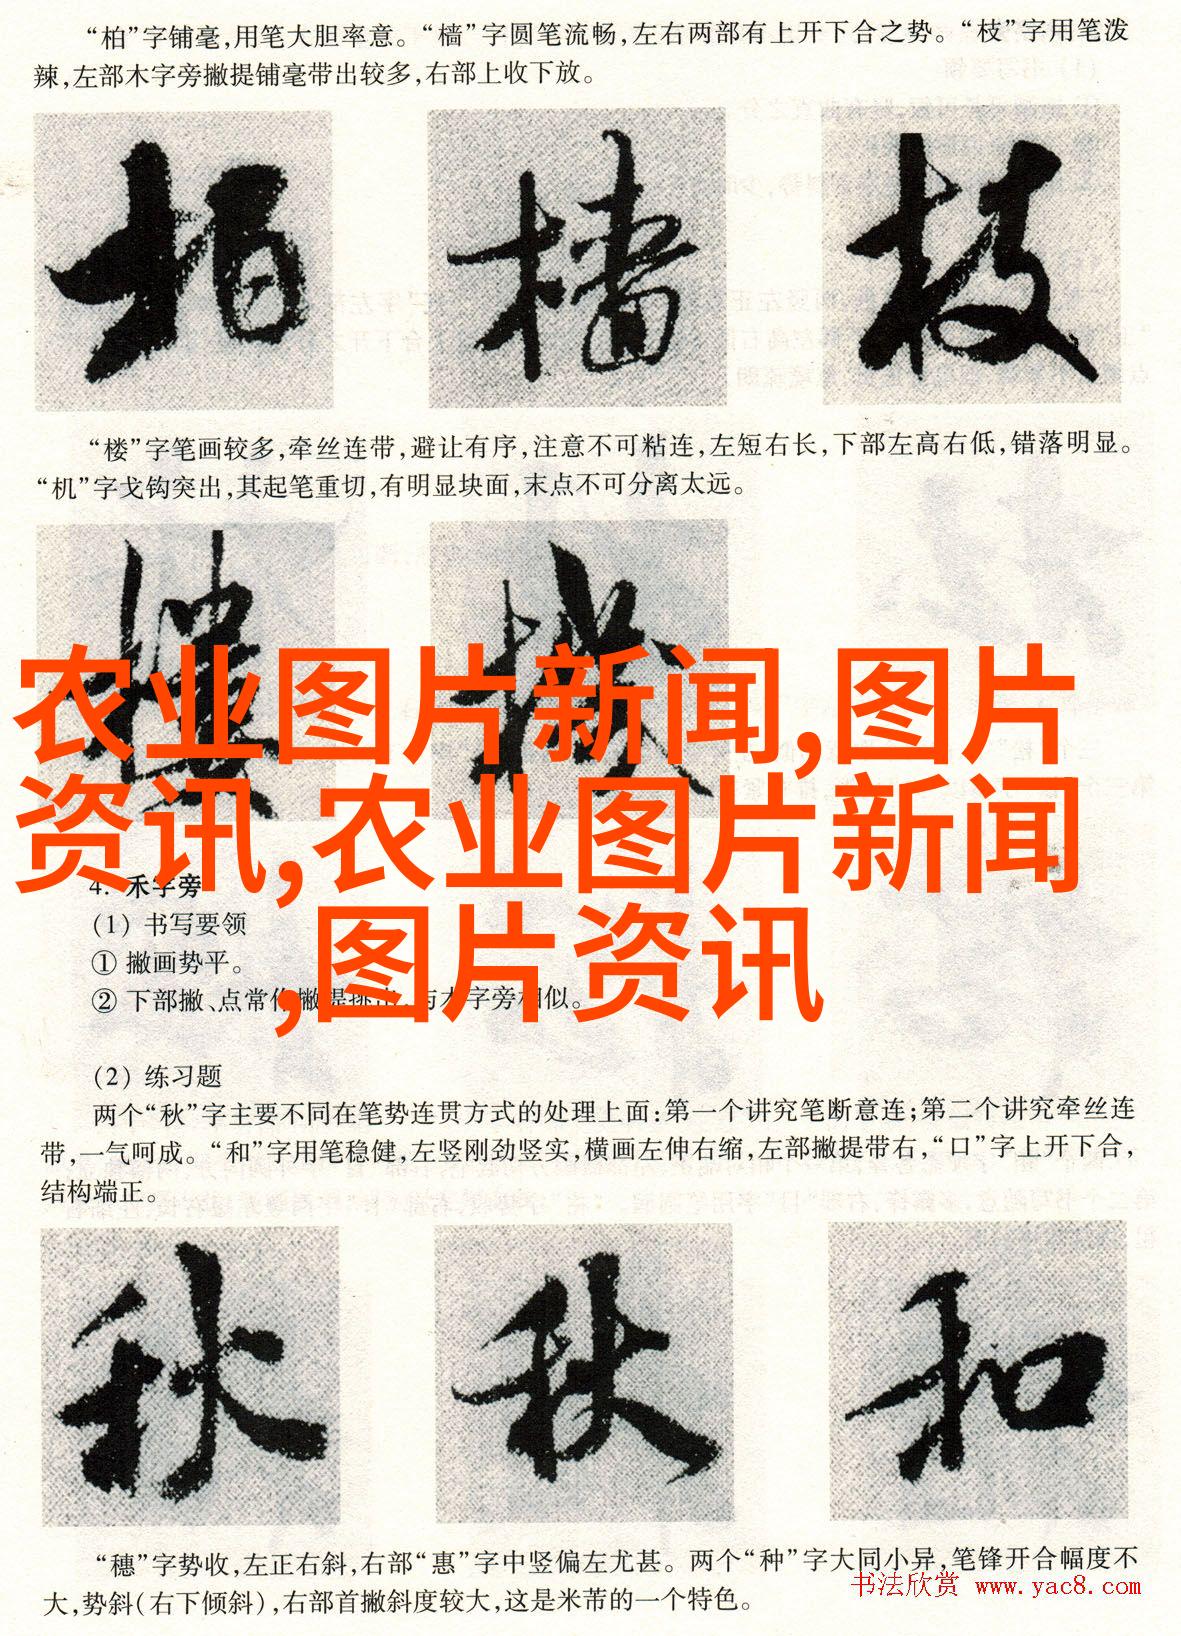 “柏”字铺毫,用笔大胆率意。“樯”字圆笔流畅,左右两部有上开下合之势。“枝”字用笔泼
辣,左部木字旁撇提铺毫带出较多,右部上收下放。
柏 樯 枝
“楼”字笔画较多,牵丝连带,避让有序,注意不可粘连,左短右长,下部左高右低,错落明显。
“机”字戈钩突出,其起笔重切,有明显块面,末点不可分离太远。
楼 機
农业图片新闻,图片
资讯,农业图片新闻
,图片资讯
4. 禾字旁
(1) 书写要领
① 撇画势平。
② 下部撇、点常作撇提挑出,与木字旁相似。
(2) 练习题
两个“秋”字主要不同在笔势连贯方式的处理上面:第一个讲究笔断意连;第二个讲究牵丝连
带,一气呵成。“和”字用笔稳健,左竖刚劲竖实,横画左伸右缩,左部撇提带右,“口”字上开下合,
结构端正。
秋 秋 和
“穗”字势收,左正右斜,右部“惠”字中竖偏左尤甚。两个“种”字大同小异,笔锋开合幅度不
大,势斜(右下倾斜),右部首撇斜度较大,这是米芾的一个特色。
书法欣赏 www.yac8.com